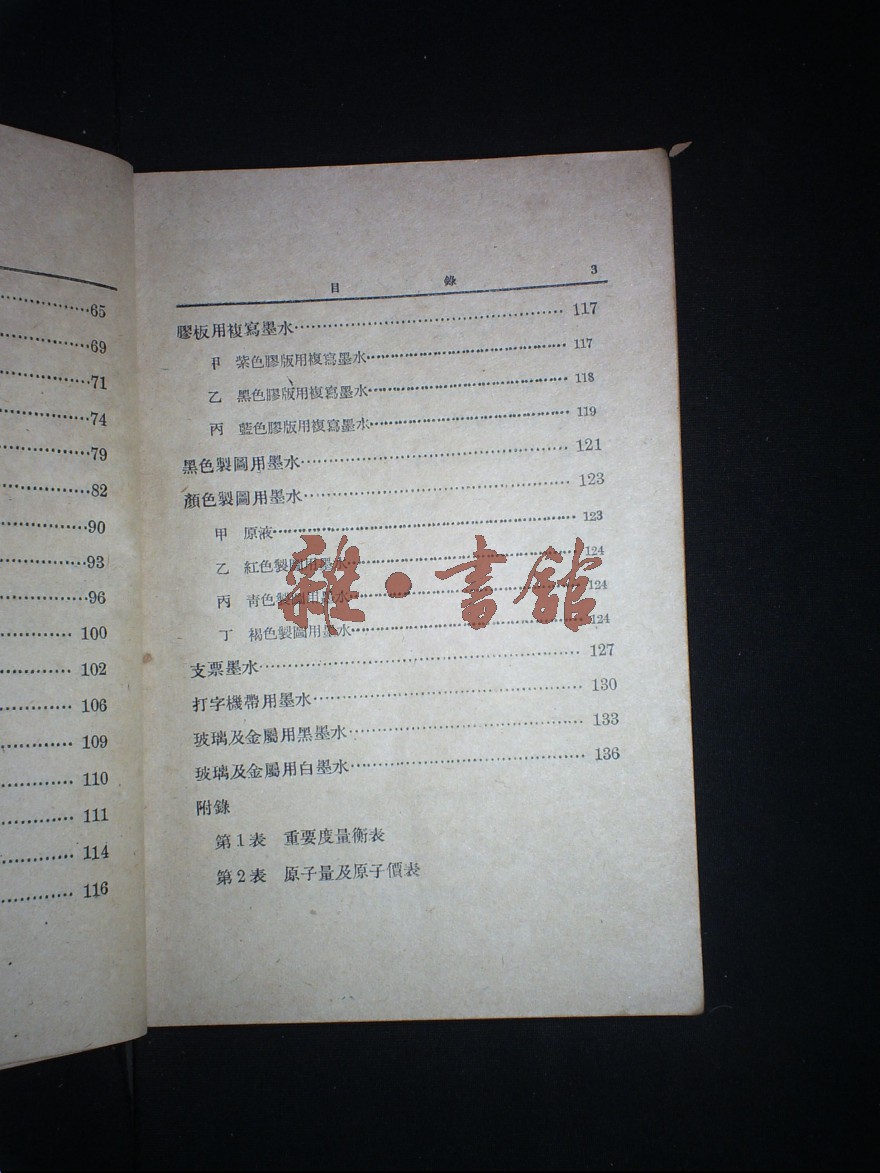 65
69
71
74
79
82
90
93
96
100
102
106
109
110
111
114
116
目錄 3
膠板用複寫墨水 117
甲 紫色膠版用複寫墨水 117
乙 黑色膠版用複寫墨水 118
丙 藍色膠版用複寫墨水 119
黑色製圖用墨水 121
顏色製圖用墨水 123
甲 原液 123
乙 紅色製圖用墨水 124
丙 青色製圖用墨水 124
丁 褐色製圖用墨水 124
雜·書館
支票墨水 127
打字機帶用墨水 130
玻璃及金屬用黑墨水 133
玻璃及金屬用白墨水 136
附錄
第1表 重要度量衡表
第2表 原子量及原子價表